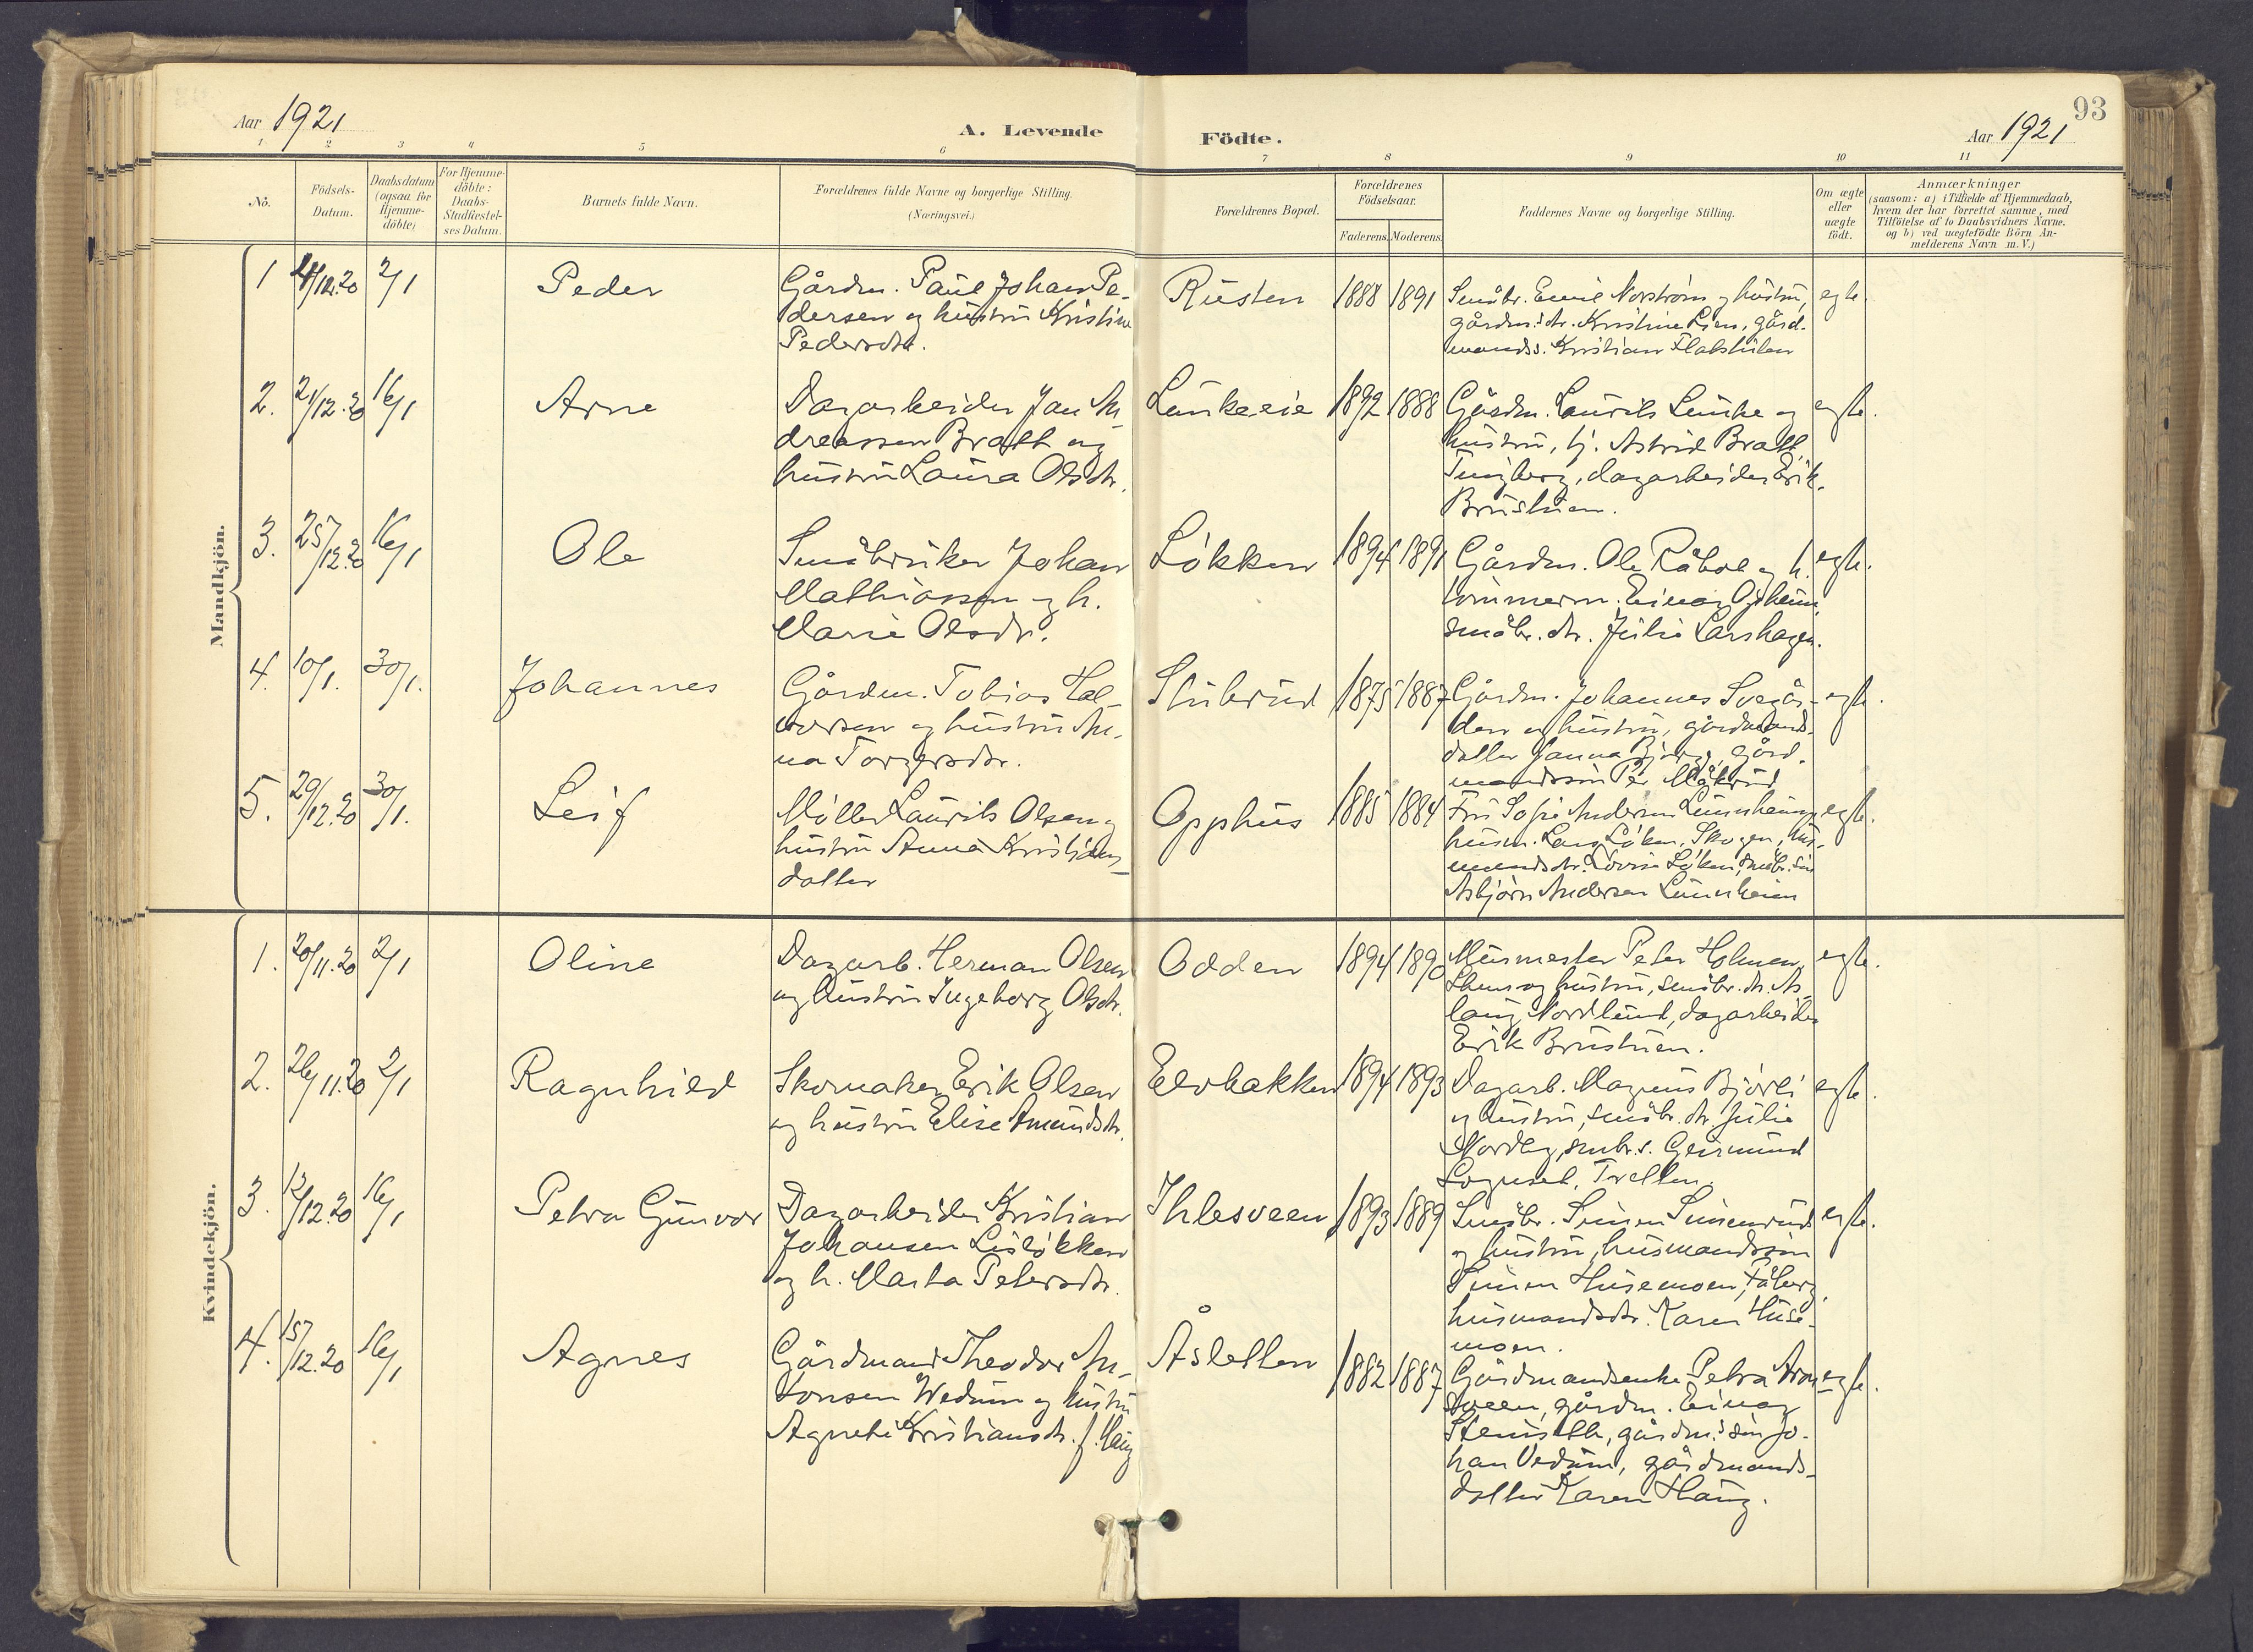 93
Aar 1921
A. Levende
Födte.
Aar 1921
1 2 3 4 5 6 7 8 9 10 11
No.
Födsels-
Datum.
Daabsdatum
(ogsaa for
Hjemme-
döbte)
For Hjemme-
döbte:
Daabs-
Stadfæstel-
ses Datum.
Barnets fulde Navn.
Forældrenes fulde Navne og borgerlige Stilling.
(Næringsvei.)
Forældrenes Bopæl.
Forældrenes
Födselsaar.
Faderens. Moderens.
Faddernes Navne og borgerlige Stilling.
Om ægte
eller
uægte
födt.
Anmærkninger
(saasom: a) i Tilfælde af Hjemmedaab,
hvem der har forrettet samme, med
Tilföielse af to Daabsvidners Navne.
og b) ved uægtefödte Börn An-
melderens Navn m.V.)
Mandkjön.
1 2/1
Peder
Gårdm. Paul Johan Pe-
dersen og hustru Kristine
Pedersdtr.
Rusten
1888 1891
Småbr. Emil Norström og hustru,
gårdm.'s dtr. Kristine Lien, gård-
mands s. Kristian Flatstulen
egte.
2. 21/12.20 16/1
Arne
Dagarbeider Jan An-
dreassen Bratt og
hustru Laura Olsdtr.
Lunkeeie
1892 1888
Gårdm. Laurits Lunke og
hustru, tj. Astrid Bratt,
dagarbeider Erik
Brustuen.
egte.
3. 25/12.20 16/1
Ole
Småbruker Johan
Mathiassen og h.
Marie Olsdtr.
Lökken
1894 1891
Gårdm. Ole Råbøl og h.
tömmerm. Einar Opheim,
småbr. dtr. Julie Larshagen.
egte.
4. 10/1. 30/1.
Johannes
Gårdm. Tobias Hal-
vorsen og hustru An-
na Torgersdtr.
Stubrud
1875 1887
Gårdm. Johannes Svegår-
den og hustru, gårdmands-
datter Janna gård-
mandssön Per
egte.
5. 29/12.20 30/1.
Leif
Möller Laurits Olsen og
hustru Anna Kristians-
datter
Opphus
1885 1884
Fru Sofie Andersen Lunnheim,
husm. Lars Löken, Skogen, hus-
mands dtr. Lovise Löken, småbr. sön
Asbjörn Andersen Lunnheim
egte.
Kvindekjön.
1. 20/11.20 2/1
Oline
Dagarb. Herman Olsen
og hustru Ingeborg Olsdtr.
Odden
1894 1890
Murmester Peter Holmen,
og hustru, småbr. dtr. As-
laug Nordlund, dagarbeider
Erik Brustuen.
egte.
2. 26/11.20 2/1
Ragnhild
Skomaker Erik Olsen
og hustru Elise Amundsdtr.
Elvbakken
1894 1893
Dagarb. Magnus Björli
og hustru, småbr. dtr. Julie
småbr. s. Geirmund
egte.
3. 12/12.20 16/1
Petra Gunvor
Dagarbeider Kristian
Johansen Lislökken
og h. Marta Petersdtr.
Ihlesveen
1893 1889
Småbr. Simen Simenrud
og hustru, husmandssön
Simen Husemoen, Fåberg,
husmandsdtr. Karen Huse-
moen.
egte.
4. 15/12.20 16/1
Agnes
Gårdmand Theodor An-
tonsen Wedum og hustru
Agnete Kristiansdtr. f. Haug
Åsletten
1882 1887
Gårdmandsenke Petra Aron-
sveen, gårdm. Einar
gårdm.'s sön Jo-
han Vedum, gårdmands-
datter Karen Haug.
egte.